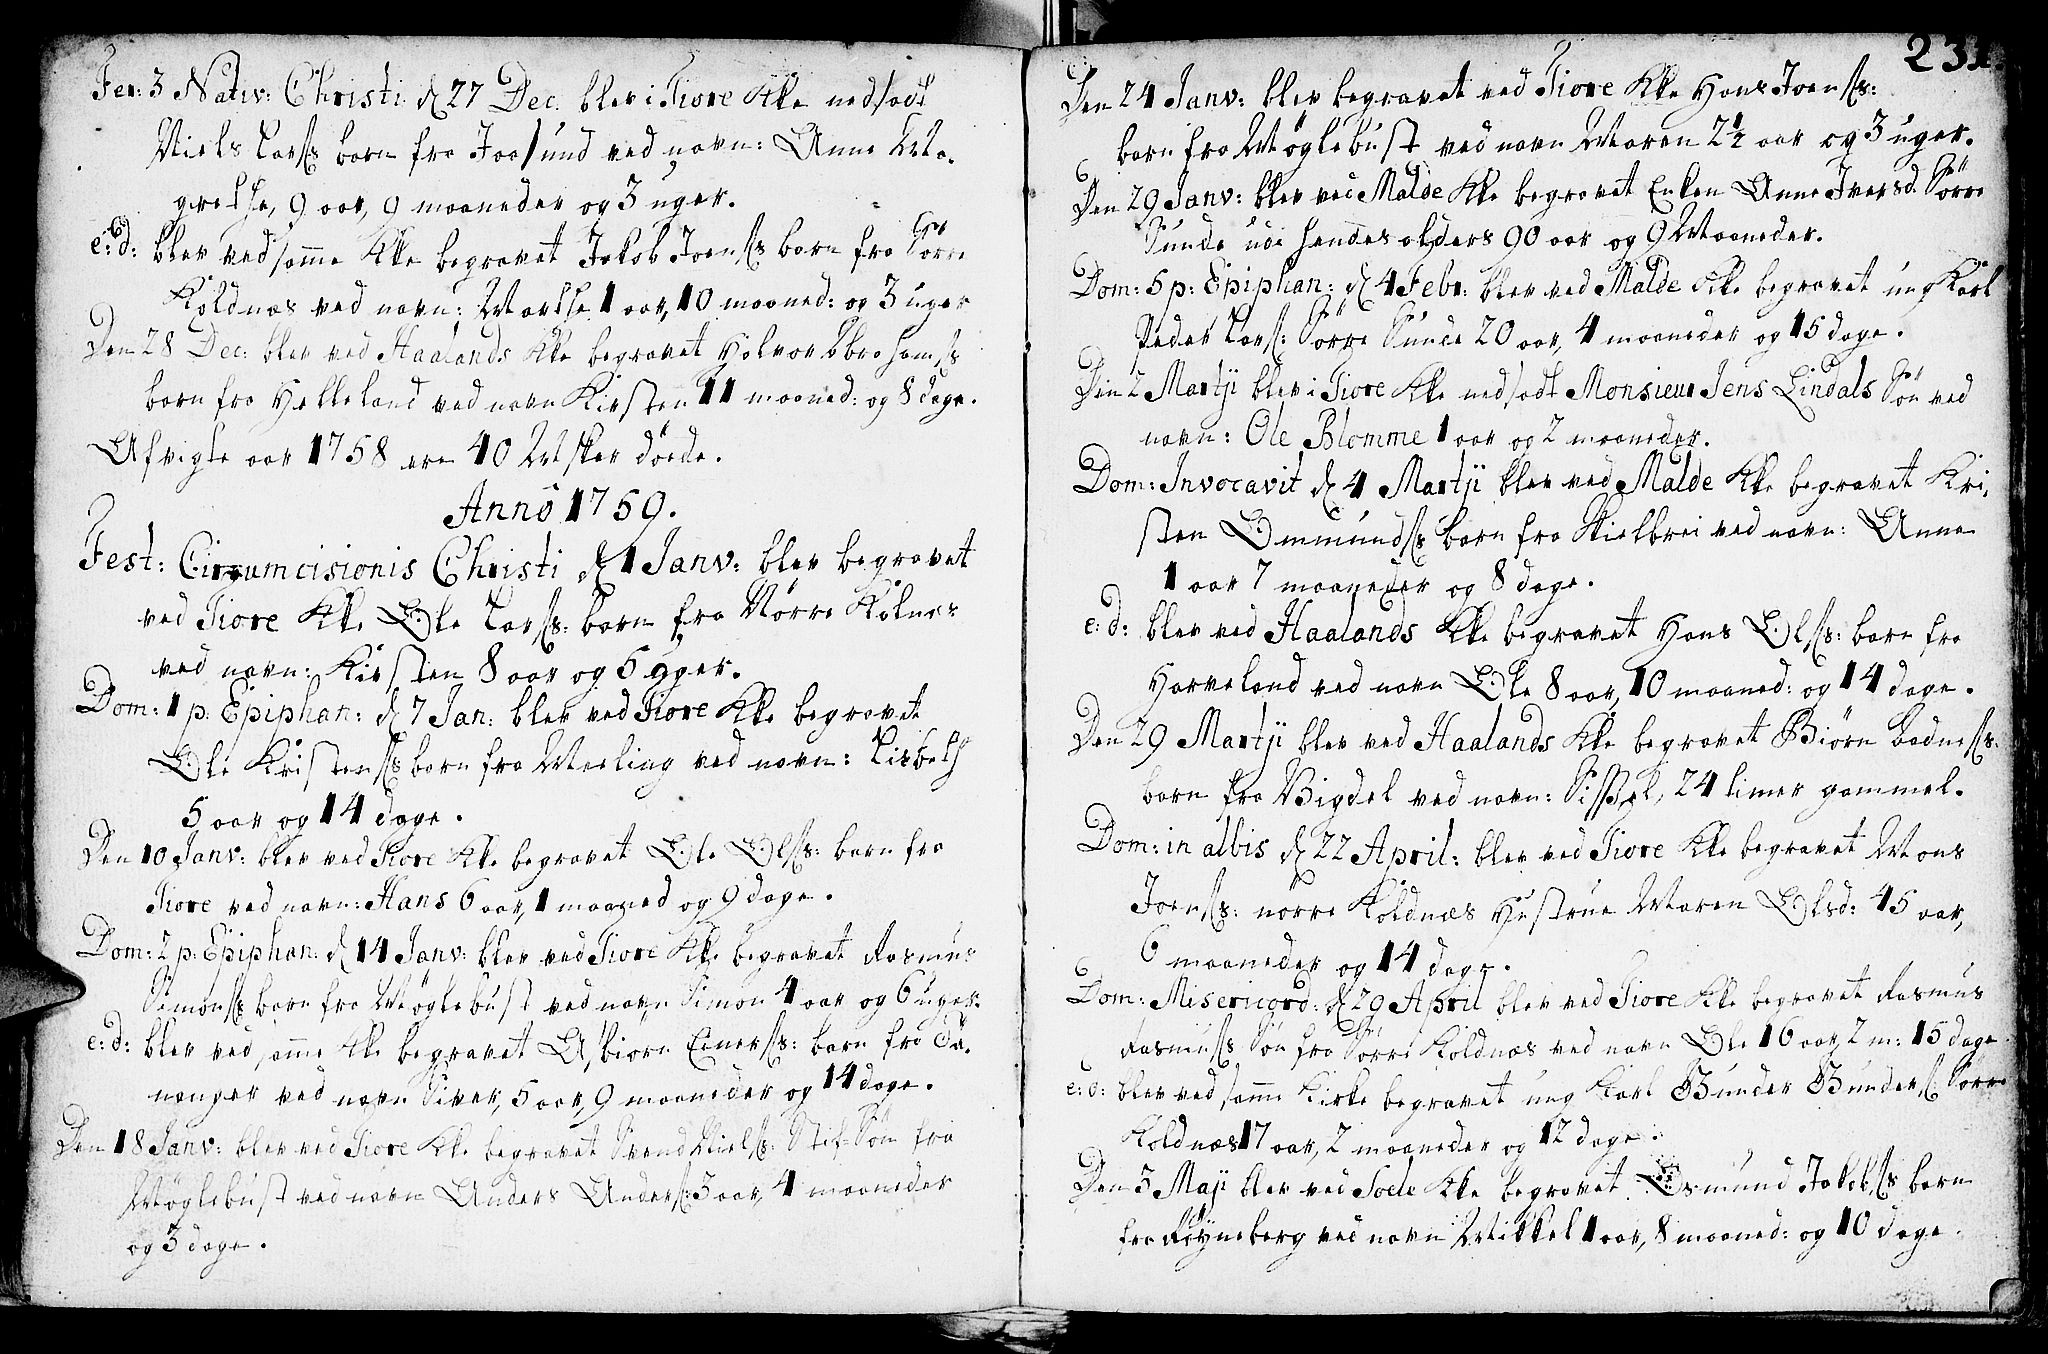 Fer: 3 Nativ: Christi d 27 Dec. blev i Tiore Kke nedsadt
Niels Lars: barn fra Joasund ved navn: Anne Ma-
grethe, 9 aar, 9 maaneder og 3 uger.
e: d: blev ved samme Kke begravet Jakob Joens: barn fra Sörre
Koldnæs ved navn: Marthe 1 aar, 10 maaned: og 3 uger
Den 28 Dec: blev ved Haalands Kke begravet Halvor Abrahams:
barn fra Helleland ved navn Kirsten 11 maaned: og 8 dage.
Afvigte aar 1758 ere 40 Msker döede.
Anno 1759.
Fest: Circumcisionis Christi d 1 Janv: blev begravet
ved Tiore Kke Ole Lars: barn fra Nörre Kolnes
ved navn: Kirsten 8 aar og 5 uger.
Dom: 1 p: Epiphan: d 7 Jan: blev ved Tiore Kke begravet
Ole Kristens: barn fra Meeling ved navn: Lisbeth
5 aar og 14 dage.
Den 10 Janv: blev ved Tiore Kke begravet Ole Ols: barn fra
Tiore ved navn: Hans 6 aar, 1 maaned og 9 dage.
Dom: 2 p: Epiphan: d 14 Janv: blev ved Tiore Kke begravet Rasmus
Simons: barn fra Möglebust ved navn Simon 4 aar og 6 uger.
e: d: blev ved samme Kke begravet Asbiörn Einers: barn fra Ta-
nanger ved navn Siver, 5 aar, 9 maaneder og 14 dage.
Den 18 Janv: blev ved Tiore Kke begravet Svend Niels: Stif-Sön fra
Möglebust ved navn Anders Anders: 5 aar, 4 maaneder
og 3 dage.
231
Den 24 Janv: blev begravet ved Tiore Kke Hans Joens:
barn fra Möglebust ved navn Maren 2 1/2 aar og 3 uger.
Den 29 Janv: blev ved Malde Kke begravet Enken Anne Iversd. Sörre
Sunde udi hendes alders 90 aar og 9 Maaneder.
Dom: 5 p: Epiphan: d 4 Febr: blev ved Malde Kke begravet ung Karl
Peder Lars: Sörre Sunde 20 aar, 4 maaneder og 15 dage.
Den 2 Martji blev i Tiore Kke nedsadt Monsieur Jens Lindals Sön ved
navn: Ole Blomme 1 aar og 2 maaneder.
Dom: Invocavit d 4 Martji blev ved Malde Kke begravet Kri-
sten Ommunds: barn fra Skielbrei ved navn: Anne
1 aar 7 maaneder og 8 dage.
e: d: blev ved Haalands Kke begravet Hans Ols: barn fra
Harveland ved navn Ole 8 aar, 10 maaned: og 14 dage.
Den 29 Martji blev ved Haalands Kke begravet Biörn Bodnes:
barn fra Vigdel ved navn: Sissel, 24 timer gammel.
Dom: in albis d 22 April: blev ved Tiore Kke begravet Mons
Joens: nörre Koldnæs Hustrue Maren Olsd: 45 aar,
6 maaneder og 14 dage.
Dom: Misericord: d 29 April blev ved Tiore Kke begravet Rasmus
Rasmus: Sön fra Sörre Koldnæs ved navn Ole 16 aar, 2 m: 15 dage
e: d: blev ved samme Kirke begravet ung Karl Gunder Gunders: Sörre
Koldnæs 17 aar, 2 maaneder og 12 dage.
Den 3 Maji blev ved Soele Kke begravet Osmund Jakobs: barn
fra Röyneberg ved navn Mikkel 1 aar, 8 maaned: og 10 dage.